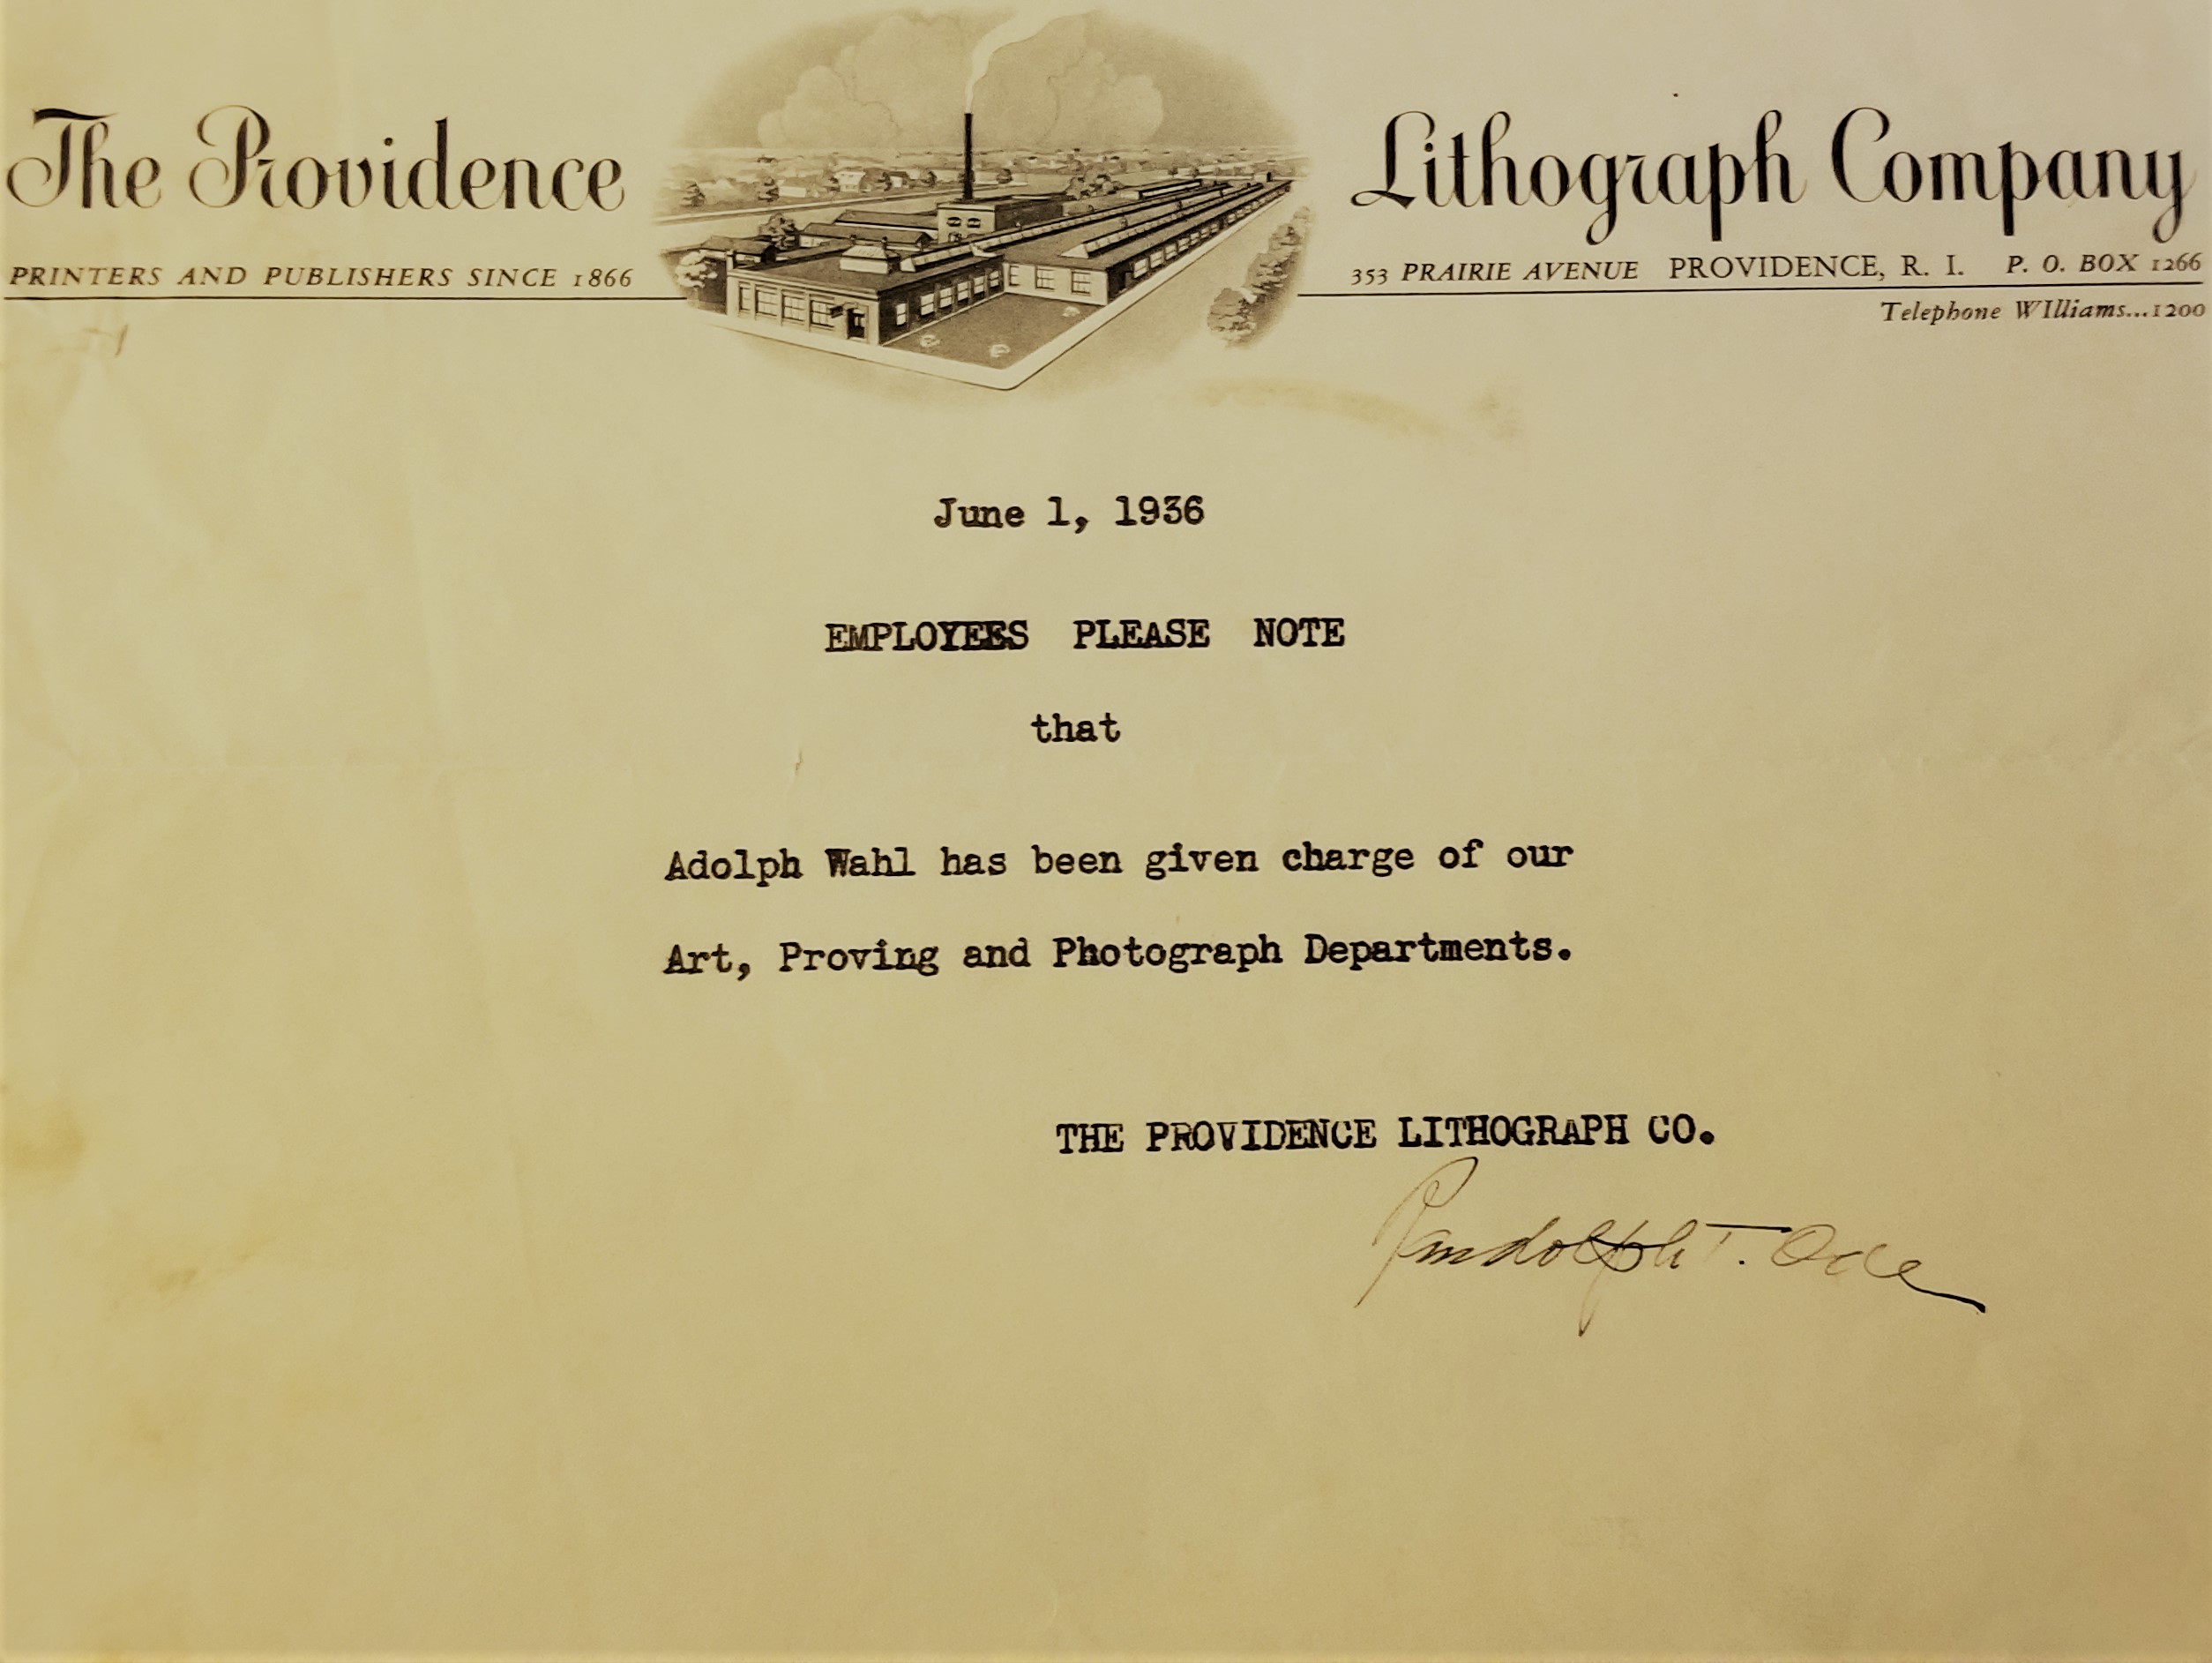 The Providence Lithograph Company
PRINTERS AND PUBLISHERS SINCE 1866
353 PRAIRIE AVENUE PROVIDENCE, R. I. P. O. BOX 1266
Telephone WIlliams...1200
June 1, 1936
EMPLOYEES PLEASE NOTE
that
Adolph Wahl has been given charge of our
Art, Proving and Photograph Departments.
THE PROVIDENCE LITHOGRAPH CO.
Randolph T. Ode